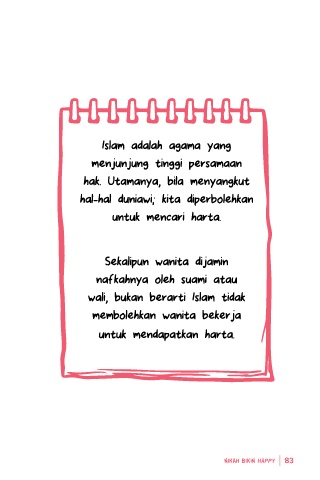 Islam adalah agama yang
menjunjung tinggi persamaan
hak. Utamanya, bila menyangkut
hal-hal duniawi; kita diperbolehkan
untuk mencari harta.
Sekalipun wanita dijamin
nafkahnya oleh suami atau
wali, bukan berarti Islam tidak
membolehkan wanita bekerja
untuk mendapatkan harta.
NIKAH BIKIN HAPPY | 83